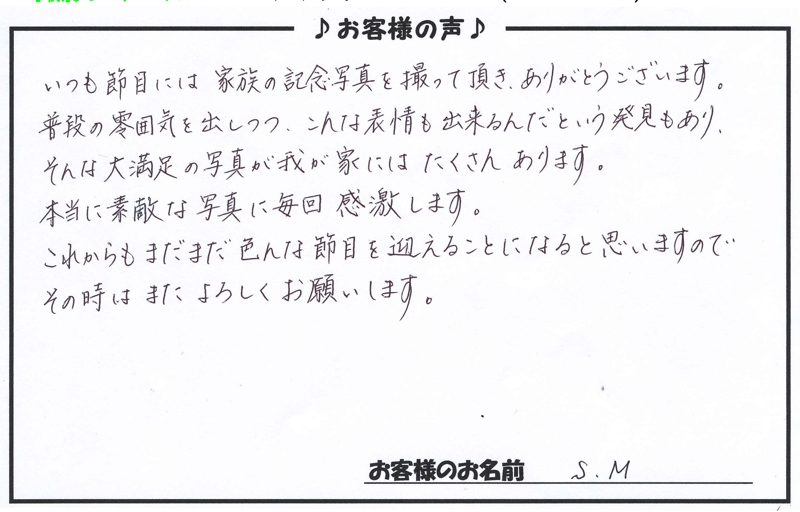 ♪お客様の声♪
いつも節目には 家族の記念写真を撮って頂き、ありがとうございます。
普段の雰囲気を出しつつ、こんな表情も出来るんだという発見もあり、
そんな大満足の写真が我が家には たくさん あります。
本当に素敵な写真に毎回 感激します。
これからもまだまだ色んな節目を迎えることになると思いますので
その時は また よろしく お願いします。
お客様のお名前 S.M